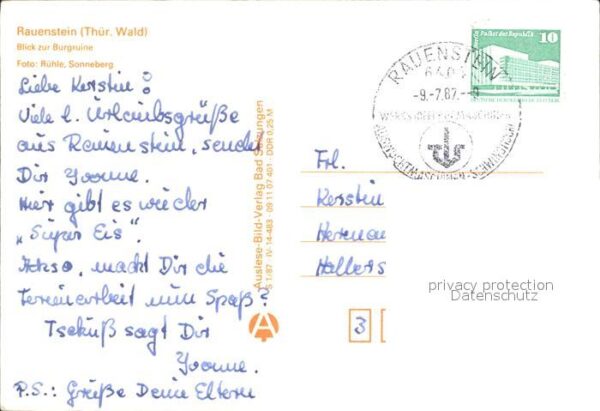 Rauenstein (Thür. Wald)
Blick zur Burgruine
Foto: Rühle, Sonneberg
Liebe Kerstin!
Viele l. Urlaubsgrüße
aus Rauenstein, sendet
Dir Yvonne.
Hier gibt es wieder
„Super Eis".
Achso, macht Dir die
Ferienarbeit nun Spaß?
Tschüß sagt Dir
Yvonne.
P.S.: Grüße Deine Eltern
Auslese-Bild-Verlag Bad Salzungen
S 1/87 · IV-14-483 · 09 11 07 401 · DDR 0,25 M
A
RAUENSTEIN
-9.-7.87.
Palast der Republik
10
Frl.
Kerstin
Herman
privacy protection
Datenschutz
3